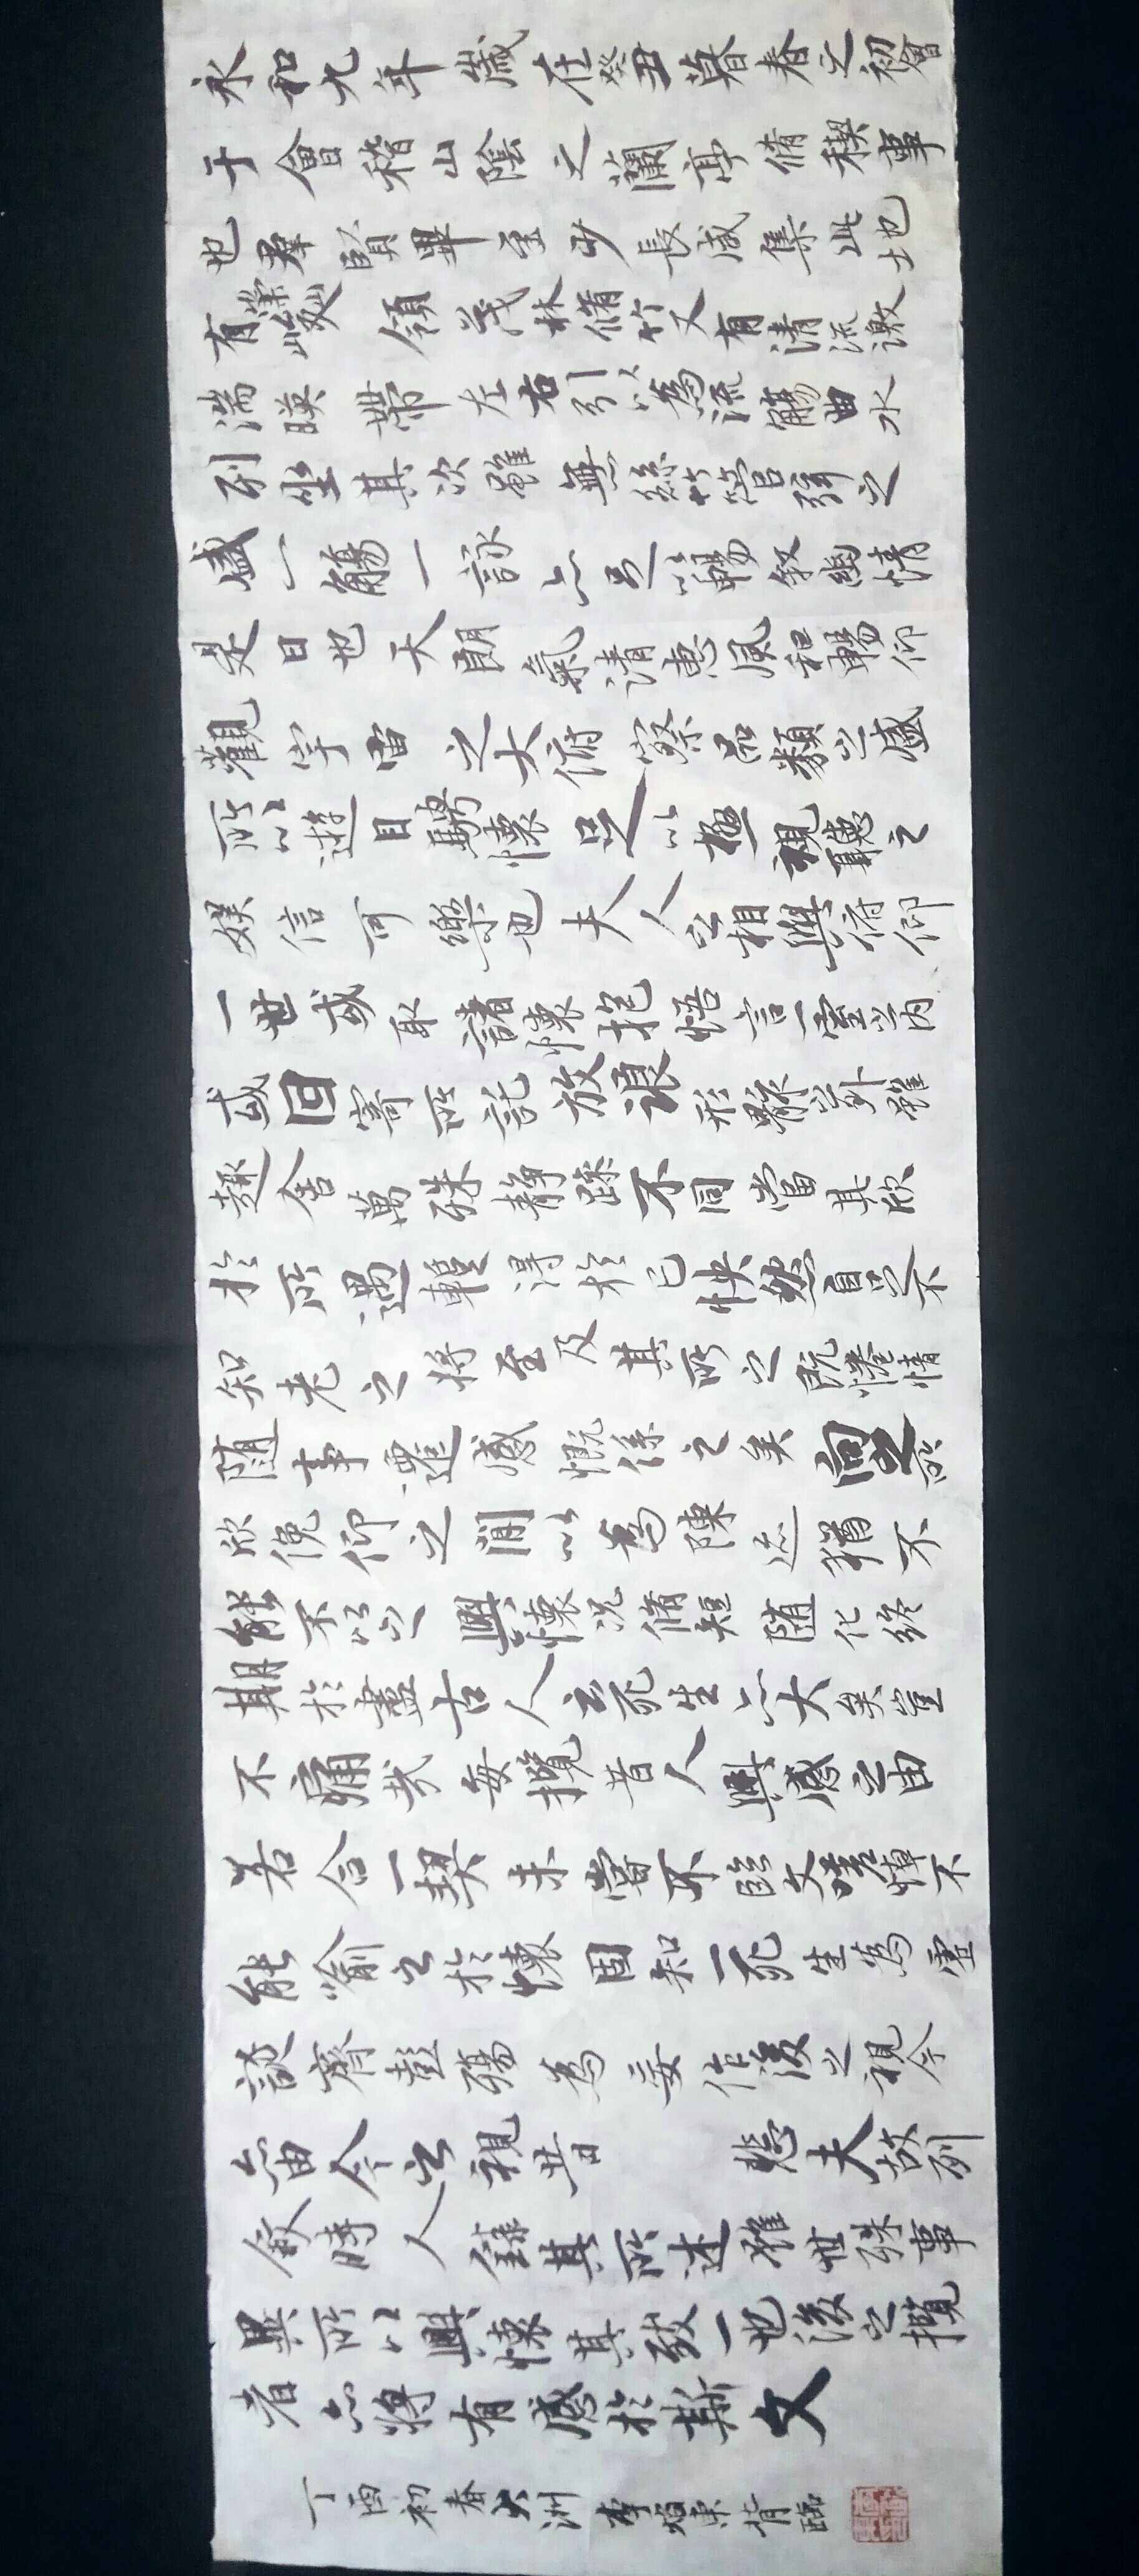 永和九年歲在癸丑暮春之初會
于會稽山陰之蘭亭脩稧事
也羣賢畢至少長咸集此地
有崇山峻領茂林脩竹又有清流激
湍暎帶左右引以為流觴曲水
列坐其次雖無絲竹管弦之
盛一觴一詠亦足以暢敘幽情
是日也天朗氣清惠風和暢仰
觀宇宙之大俯察品類之盛
所以遊目騁懷足以極視聽之
娛信可樂也夫人之相與俯仰
一世或取諸懷抱悟言一室之內
或因寄所託放浪形骸之外雖
趣舍萬殊靜躁不同當其欣
於所遇輒得於己快然自足不
知老之將至及其所之既惓情
隨事遷感慨係之矣向之所
欣俛仰之閒以為陳迹猶不
能不以之興懷況脩短隨化終
期於盡古人云死生亦大矣豈
不痛哉每攬昔人興感之由
若合一契未嘗不臨文嗟悼不
能喻之於懷固知一死生為虛
誕齊彭殤為妄作後之視今
亦由今之視昔 悲夫故列
敘時人錄其所述雖世殊事
異所以興懷其致一也後之攬
者亦將有感於斯文
丁酉初春大洲李東背臨